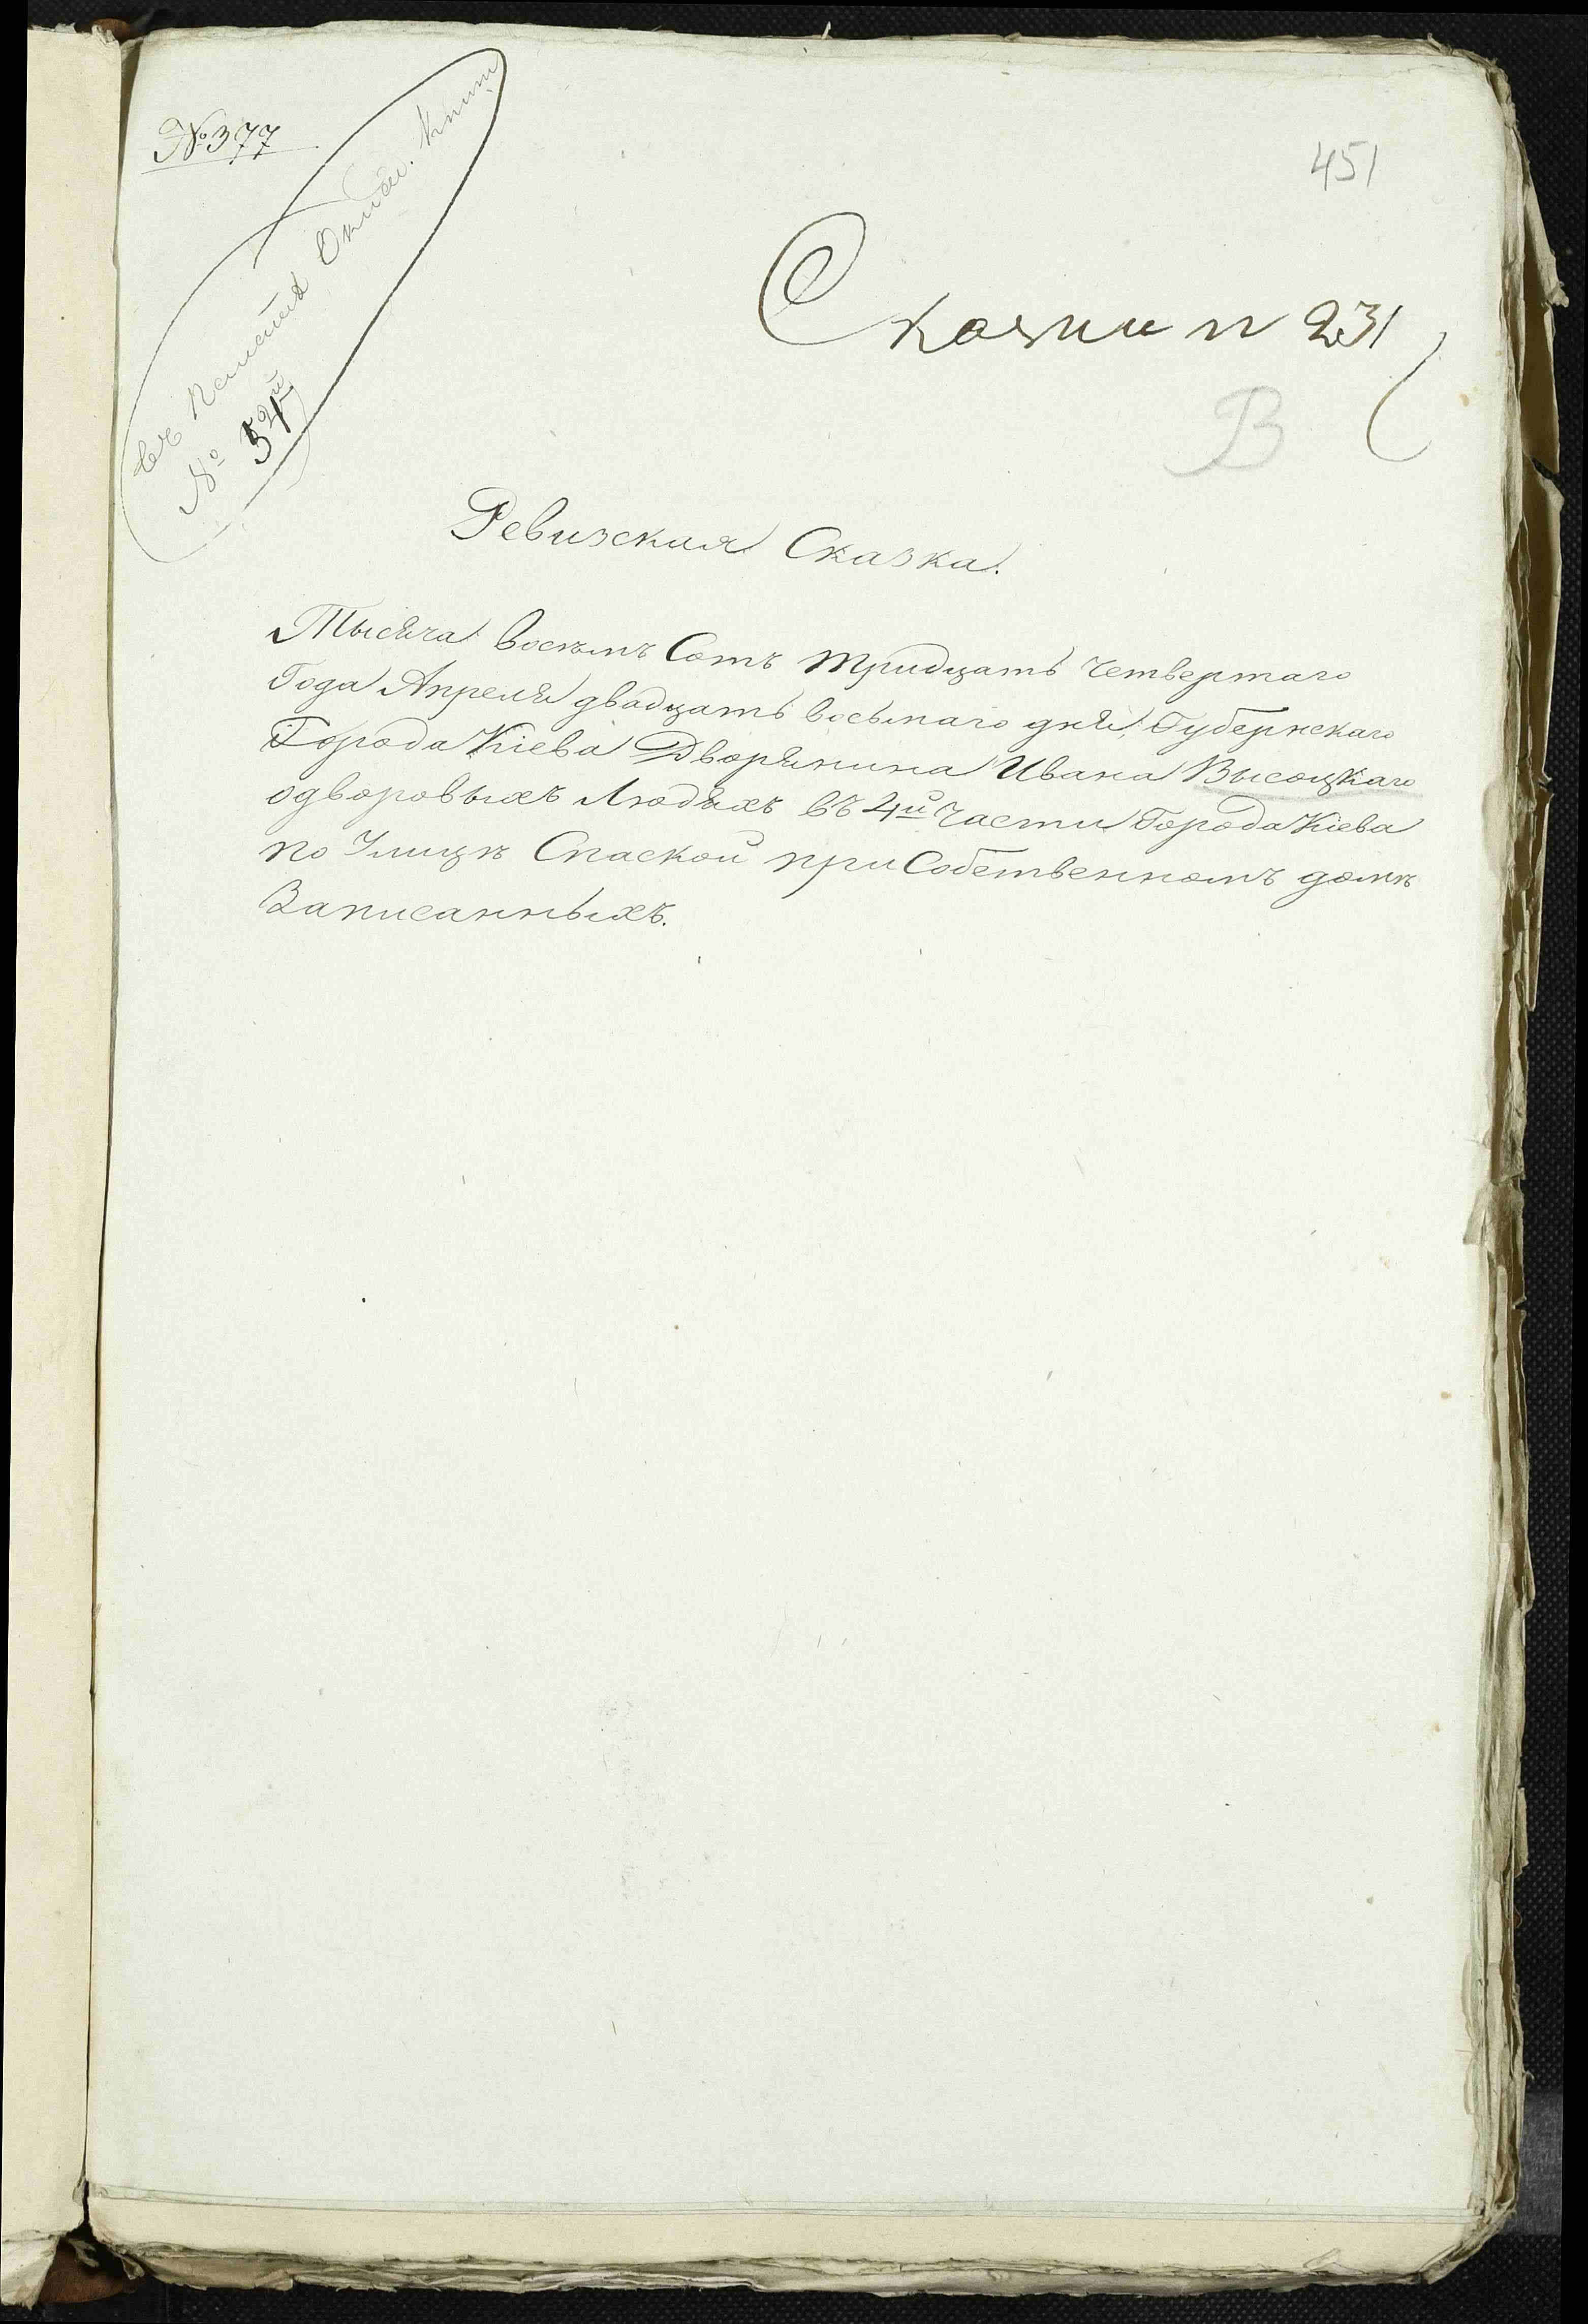 № 377
451
№ 34й
Сказки № 231
В
Ревизская Сказка.
Тысяча восемъ Сотъ тридцать четвертаго
Года Апреля двадцать восьмаго дня, Губернскаго
Города Кіева Дворянина Ивана Высоцкаго
одворовыхъ Людяхъ въ 4й Части Города Кіева
по Улицѣ Спаской при Собственномъ домѣ
Записанныхъ.